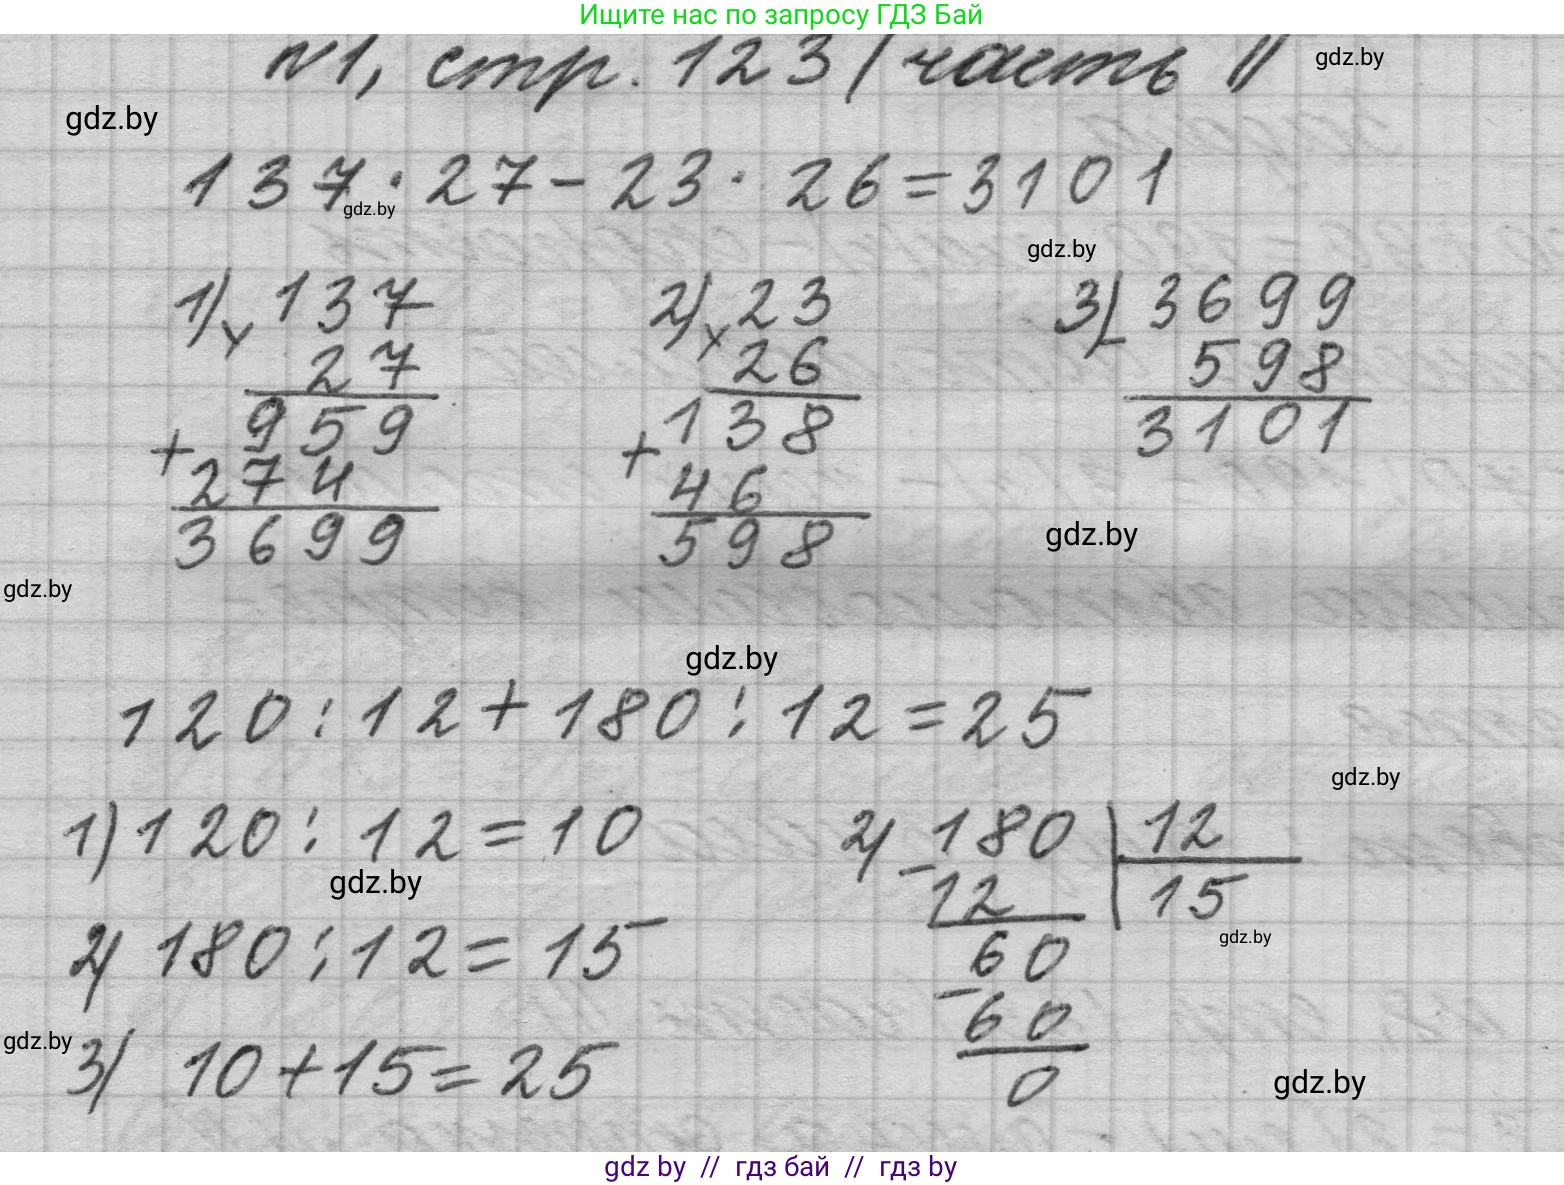 Ищите нас по запросу ГДЗ Бай
№1, стр. 123 / часть II
gdz.by
gdz.by
137 · 27 - 23 · 26 = 3101
gdz.by
gdz.by
1) × 137
27
+ 959
274
3699
2) × 23
26
+ 138
46
598
3) - 3699
598
3101
gdz.by
gdz.by
gdz.by
120 : 12 + 180 : 12 = 25
gdz.by
1) 120 : 12 = 10
gdz.by
2) 180 : 12 = 15
3) 10 + 15 = 25
2) - 180 | 12
12 | 15
gdz.by
60
- 60
0
gdz.by
gdz.by
gdz by // гдз бай // гдз by